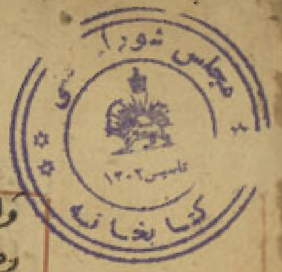 مجلس شورا ی
تاسیس ۱۳۰۲
کتابخانه